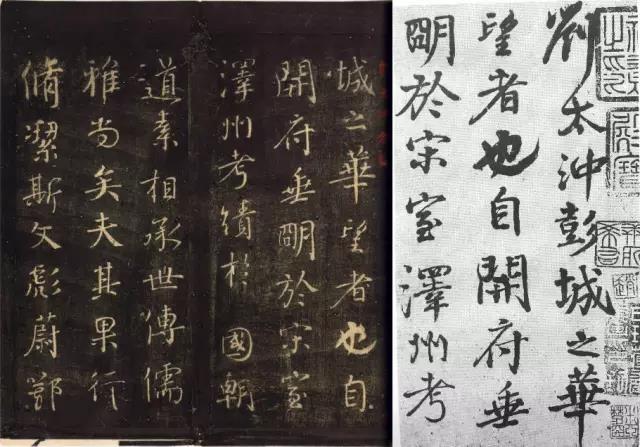 劉太沖彭城之華
望者也自開府垂
朙於宋室澤州考
城之華望者也自
開府垂朙於宋室
澤州考績於國朝
道素相承世傳儒
雅尚矣夫其果行
脩潔斯文彪蔚鄂